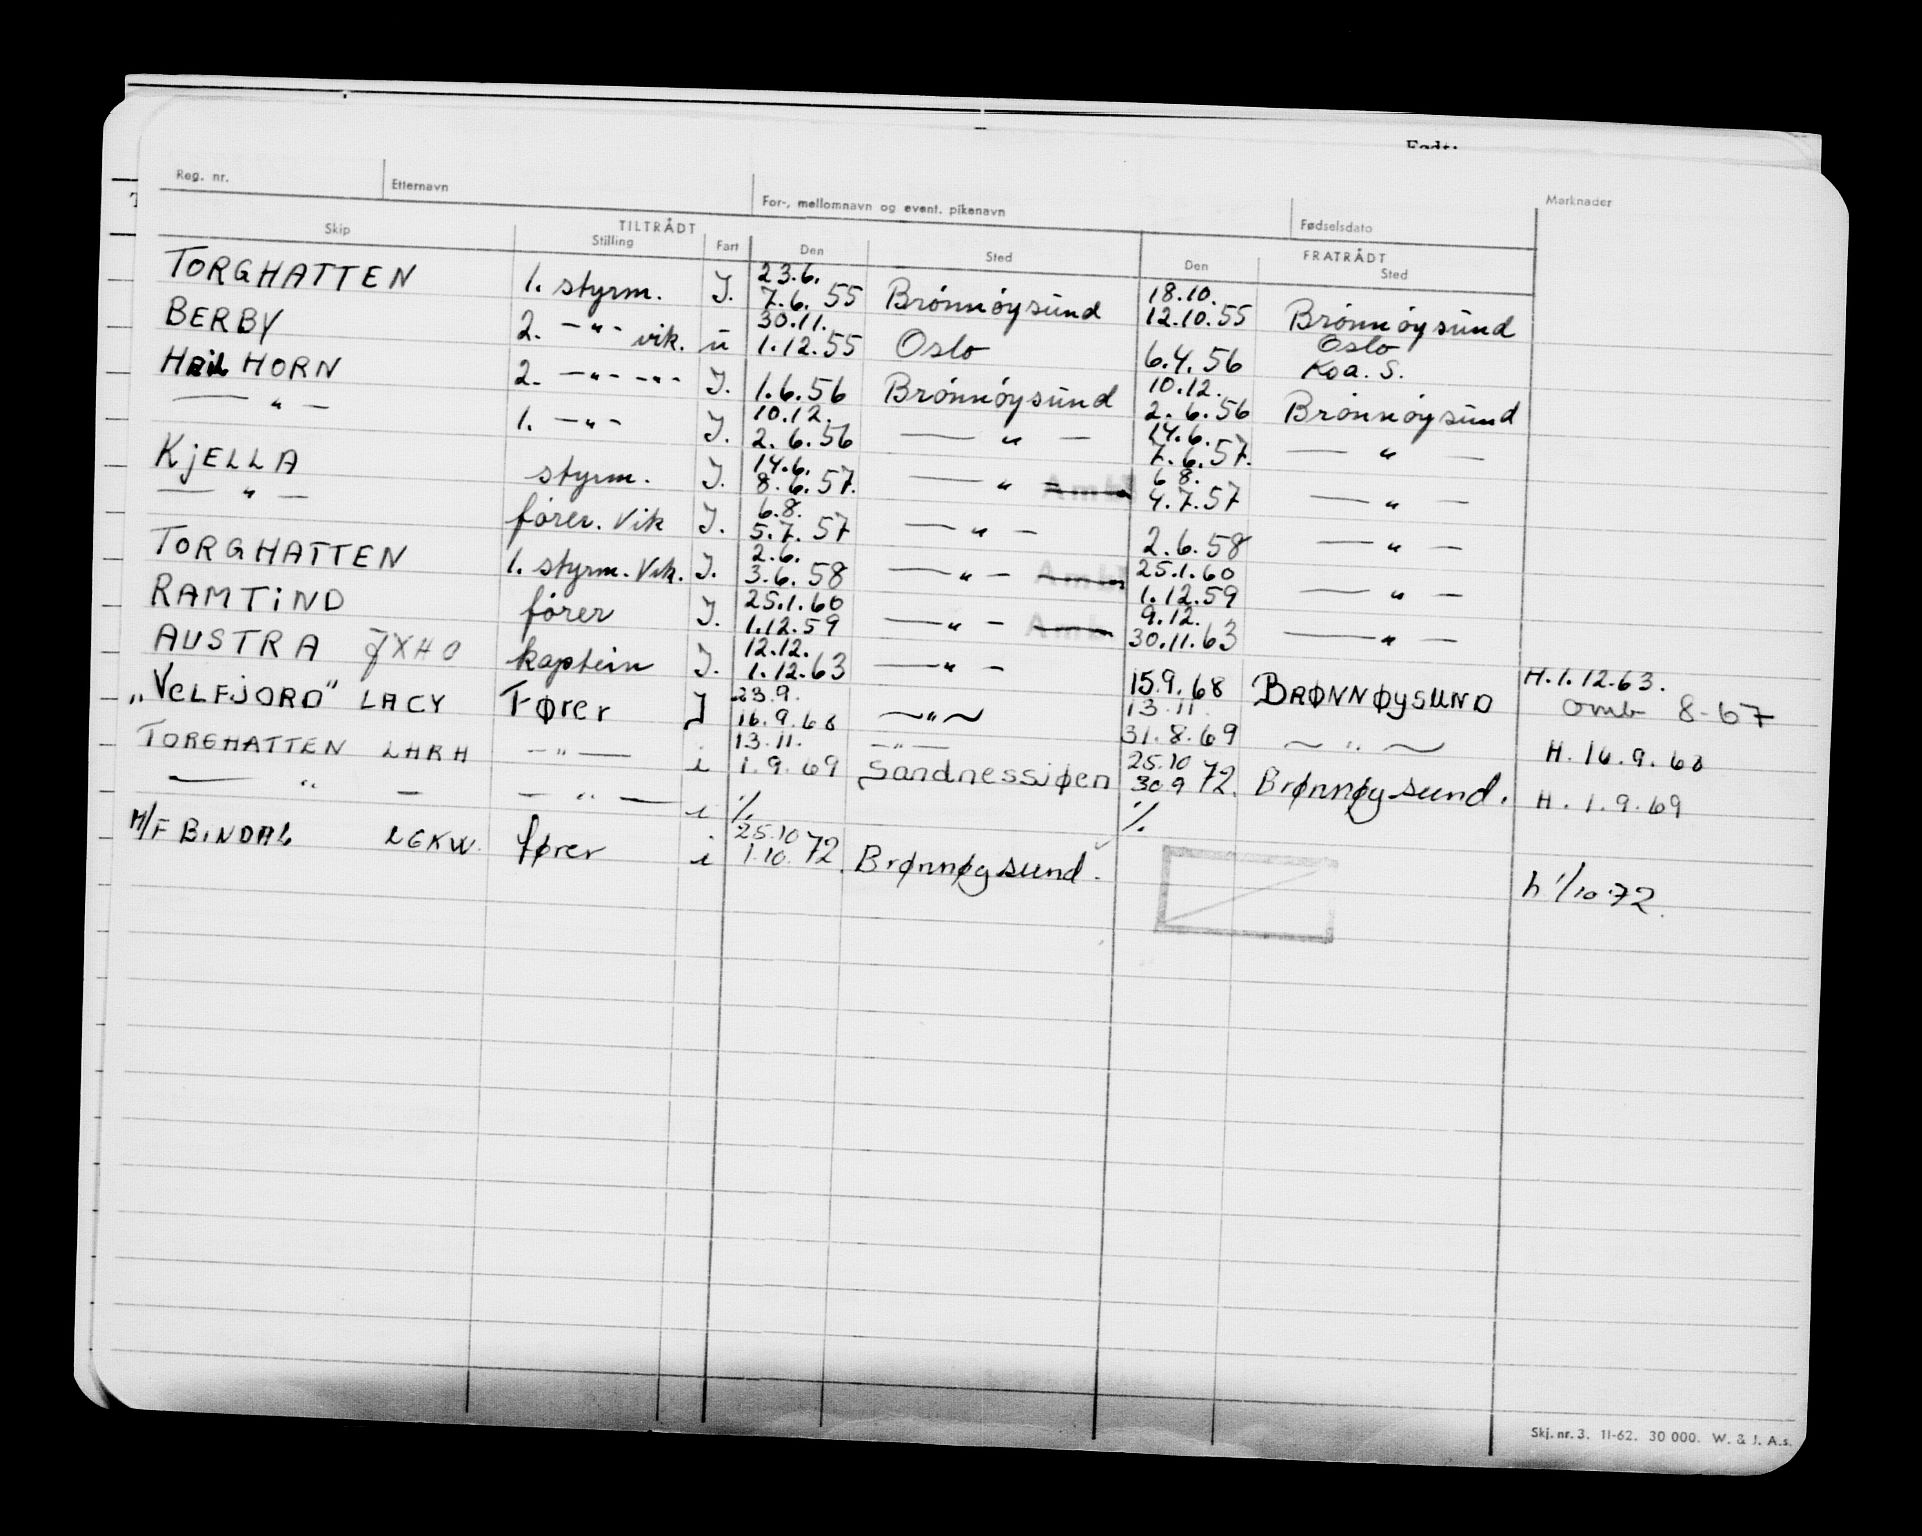 Født:
Reg. nr. Etternavn For-, mellomnavn og event. pikenavn Fødselsdato Merknader
TILTRÅDT FRATRÅDT
Skip Stilling Fart Den Sted Den Sted
23.6. 18.10.
TORGHATTEN 1. styrm. J. 7.6. 55 Brónnóysund 12.10.55 Brónnóysund
30.11. Oslo
BERBY 2. -"- vik. u 1.12.55 Oslo 6.4.56 Koa. S.
10.12.
HORN 2. -"- -"- J. 1.6.56 Brónnóysund 2.6.56 Brónnóysund
10.12. 14.6.
— " — 1. -"- J. 2.6.56 — " — 7.6.57. — " —
14.6. 6 8.
KjELLA styrm. J. 8.6.57. — " 4.7.57 — " —
6.8.
— " — fórer. Vik J. 5.7. 57 — " — 2.6.58 — " —
2.6. 25.1.60
TORGHATTEN 1. styrm. Vik. J. 3.6. 58 — " — 1.12.59 — " —
25.1.60 9.12.
RAMTiND fórer J. 1.12.59 — " — 30.11.63 — " —
12.12.
AUSTRA JXHO kaptein J. 1.12.63 — " — 15.9.68 BRØNNØYSUND H.1.12.63.
23.9. 13.11. omb 8-67
„VELFJORD" LACY Fører J 16.9.68 — " — 31.8.69 — " — H. 16.9.68
13.11. — " — 25.10
TORGHATTEN LHRH — " — i 1.9.69 Sandnessjøen 30.9 72. Brønnøysund. H. 1.9.69
— " — — " — i %. %.
25.10
M/F BINDAL LGKW. fører i 1.10. 72. Brønnøysund. h 1/10.72.
Skj. nr. 3. 11-62. 30 000. W. & J. A.s.